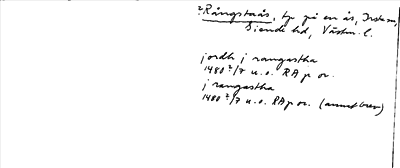 ? Rångstaås, tp på en ås, Irsta sn,
Siende hd, Västm. l.
jordh j rangastha
1480 2/7 u.o. RAp or.
j rangastha
1480 2/7 u.o. RAp or. (annat brev)